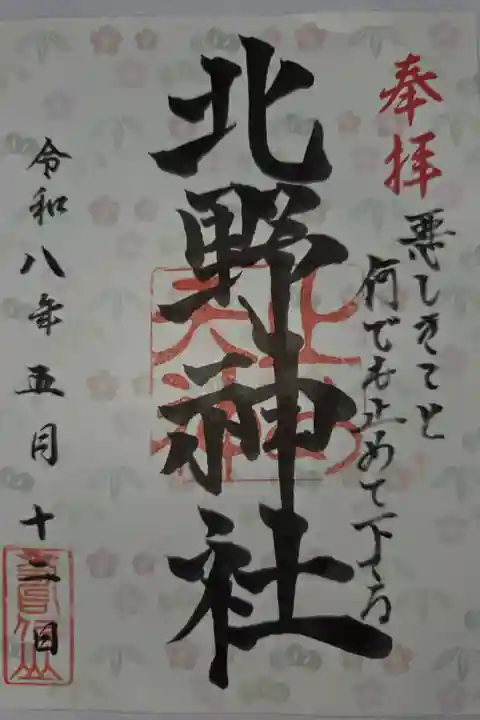 奉拝
悪しきこと
何でも止めて下さる
北野神社
止め
天神
令和八年五月十二日